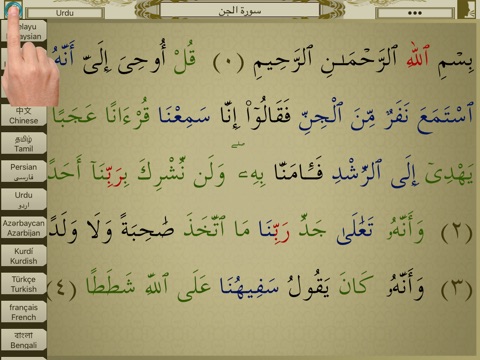 Urdu
سورة الجن
•••
elayu
aysian
中文
Chinese
தமிழ்
Tamil
Persian
فارسي
Urdu
اردو
Azərbaycan
Azarbijan
Kurdî
Kurdish
Türkçe
Turkish
français
French
বাংলা
Bengali
بِسْمِ ٱللَّهِ ٱلرَّحْمَـٰنِ ٱلرَّحِيمِ (٠) قُلْ أُوحِىَ إِلَىَّ أَنَّهُ
ٱسْتَمَعَ نَفَرٌ مِّنَ ٱلْجِنِّ فَقَالُوٓا۟ إِنَّا سَمِعْنَا قُرْءَانًا عَجَبًا
يَهْدِىٓ إِلَى ٱلرُّشْدِ فَـَٔامَنَّا بِهِۦ ۖ وَلَن نُّشْرِكَ بِرَبِّنَآ أَحَدًا
(٢) وَأَنَّهُۥ تَعَٰلَىٰ جَدُّ رَبِّنَا مَا ٱتَّخَذَ صَٰحِبَةً وَلَا وَلَدًا
(٣) وَأَنَّهُۥ كَانَ يَقُولُ سَفِيهُنَا عَلَى ٱللَّهِ شَطَطًا (٤)